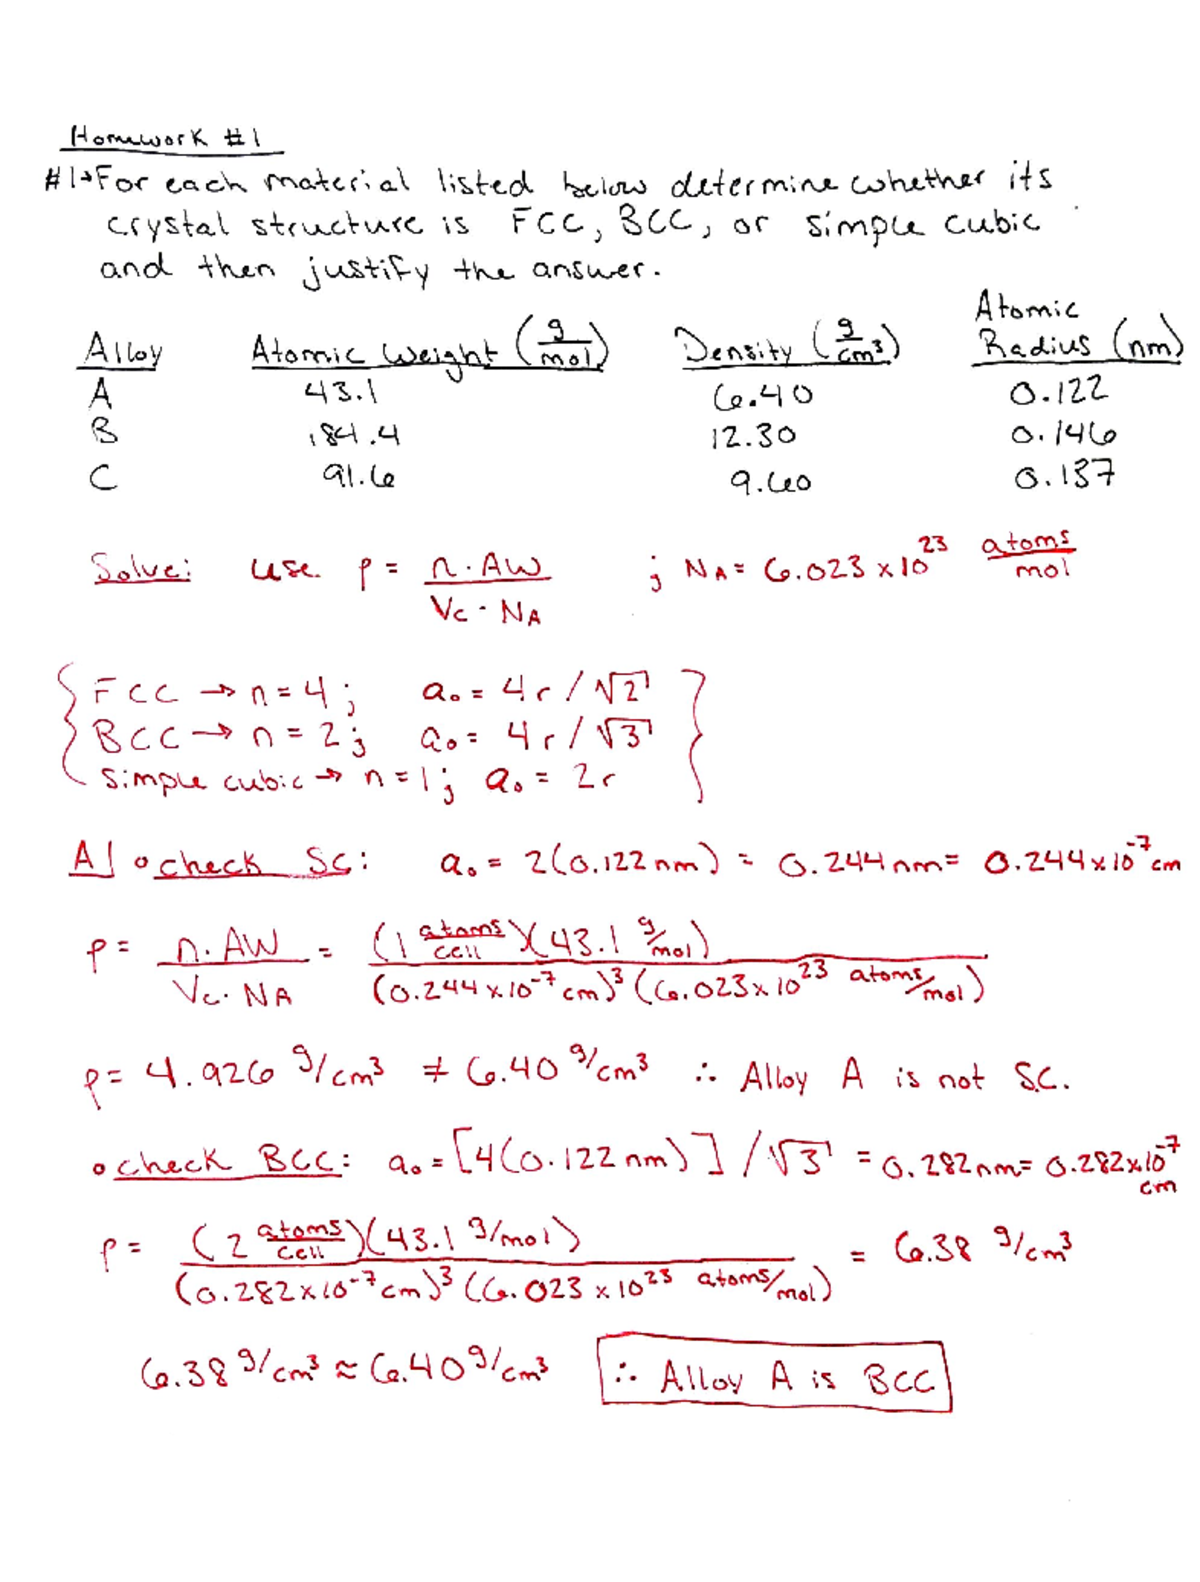 Homework #1
#1→For each material listed below determine whether its
crystal structure is FCC, BCC, or simple cubic
and then justify the answer.
Alloy Atomic Weight (g/mol) Density (g/cm³) Atomic Radius (nm)
A 43.1 6.40 0.122
B 184.4 12.30 0.146
C 91.6 9.60 0.137
Solve: use ρ = n·AW / Vc·NA ; NA = 6.023 x 10²³ atoms/mol
FCC → n = 4; a₀ = 4r/√2
BCC → n = 2; a₀ = 4r/√3
simple cubic → n = 1; a₀ = 2r
A] • check SC: a₀ = 2(0.122 nm) = 0.244 nm = 0.244 x 10⁻⁷ cm
ρ = n·AW / Vc·NA = (1 atoms/cell)(43.1 g/mol) / (0.244 x 10⁻⁷ cm)³ (6.023 x 10²³ atoms/mol)
ρ = 4.926 g/cm³ ≠ 6.40 g/cm³ ∴ Alloy A is not SC.
• check BCC: a₀ = [4(0.122 nm)] / √3 = 0.282 nm = 0.282 x 10⁻⁷ cm
ρ = (2 atoms/cell)(43.1 g/mol) / (0.282 x 10⁻⁷ cm)³ (6.023 x 10²³ atoms/mol) = 6.38 g/cm³
6.38 g/cm³ ≈ 6.40 g/cm³ ∴ Alloy A is BCC